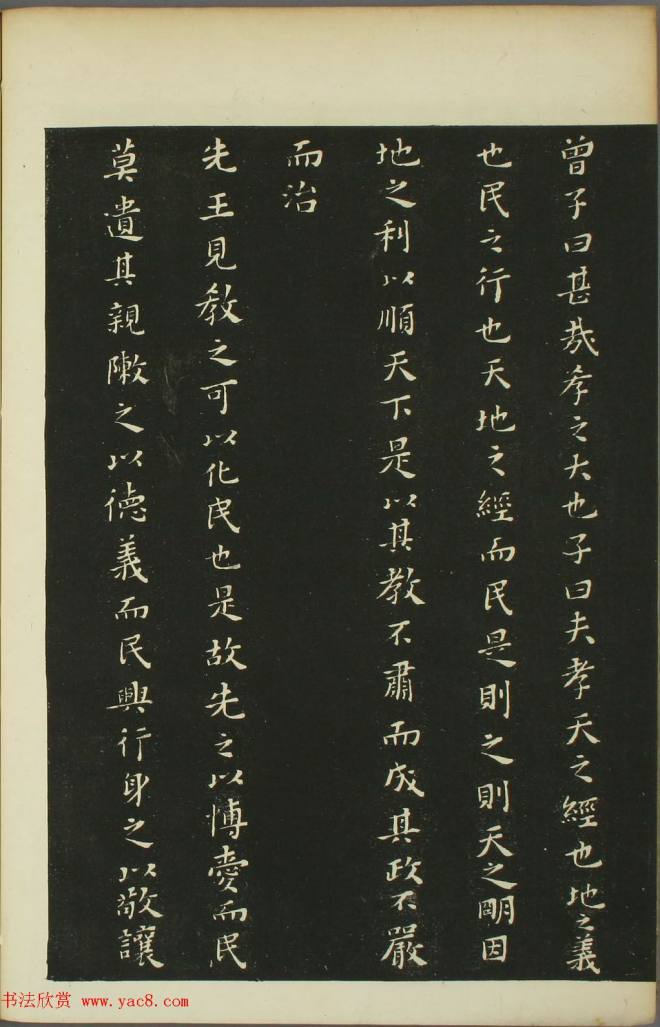 曾子曰甚哉孝之大也子曰夫孝天之經也地之義
也民之行也天地之經而民是則之則天之明因
地之利以順天下是以其教不肅而成其政不嚴
而治
先王見教之可以化民也是故先之以博愛而民
莫遺其親敶之以德義而民興行身之以敬讓
书法欣赏 www.yac8.com